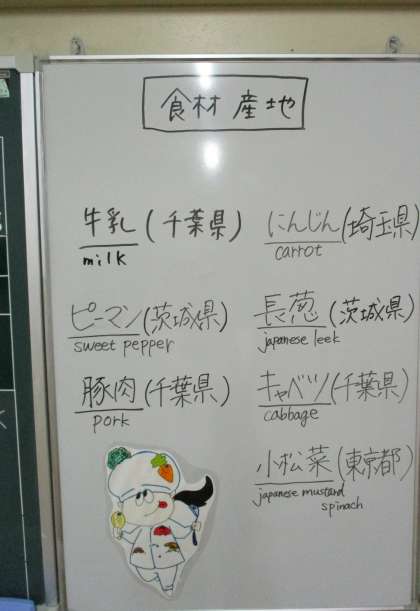 食材 産地
牛乳(千葉県)
milk
ピーマン(茨城県)
sweet pepper
豚肉(千葉県)
pork
にんじん(埼玉県)
carrot
長葱(茨城県)
japanese leek
キャベツ(千葉県)
cabbage
小松菜(東京都)
japanese mustand
spinach